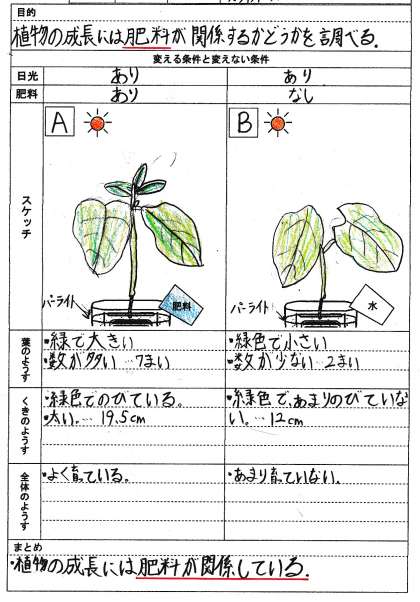 目的
植物の成長には肥料が関係するかどうかを調べる。
変える条件と変えない条件
日光 あり あり
肥料 あり なし
スケッチ
A B
パーライト 肥料 パーライト 水
葉のようす
・緑で大きい
・数が多い…7まい
・緑色で小さい
・数が少ない…2まい
くきのようす
・緑色でのびている。
・太い。… 19.5cm
・緑色で、あまりのびていな
い。… 12cm
全体のようす
・よく育っている。
・あまり育っていない。
まとめ
・植物の成長には肥料が関係している。